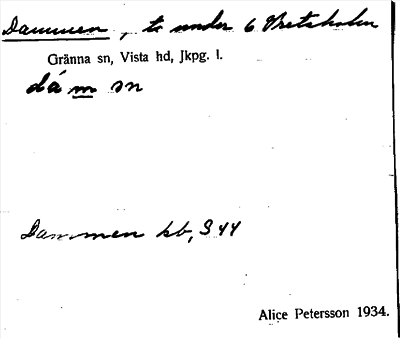 Dammen, to under 6 Vretaholm
Gränna sn, Vista hd, Jkpg. l.
dám sn
Dammen kb, S 44
Alice Petersson 1934.